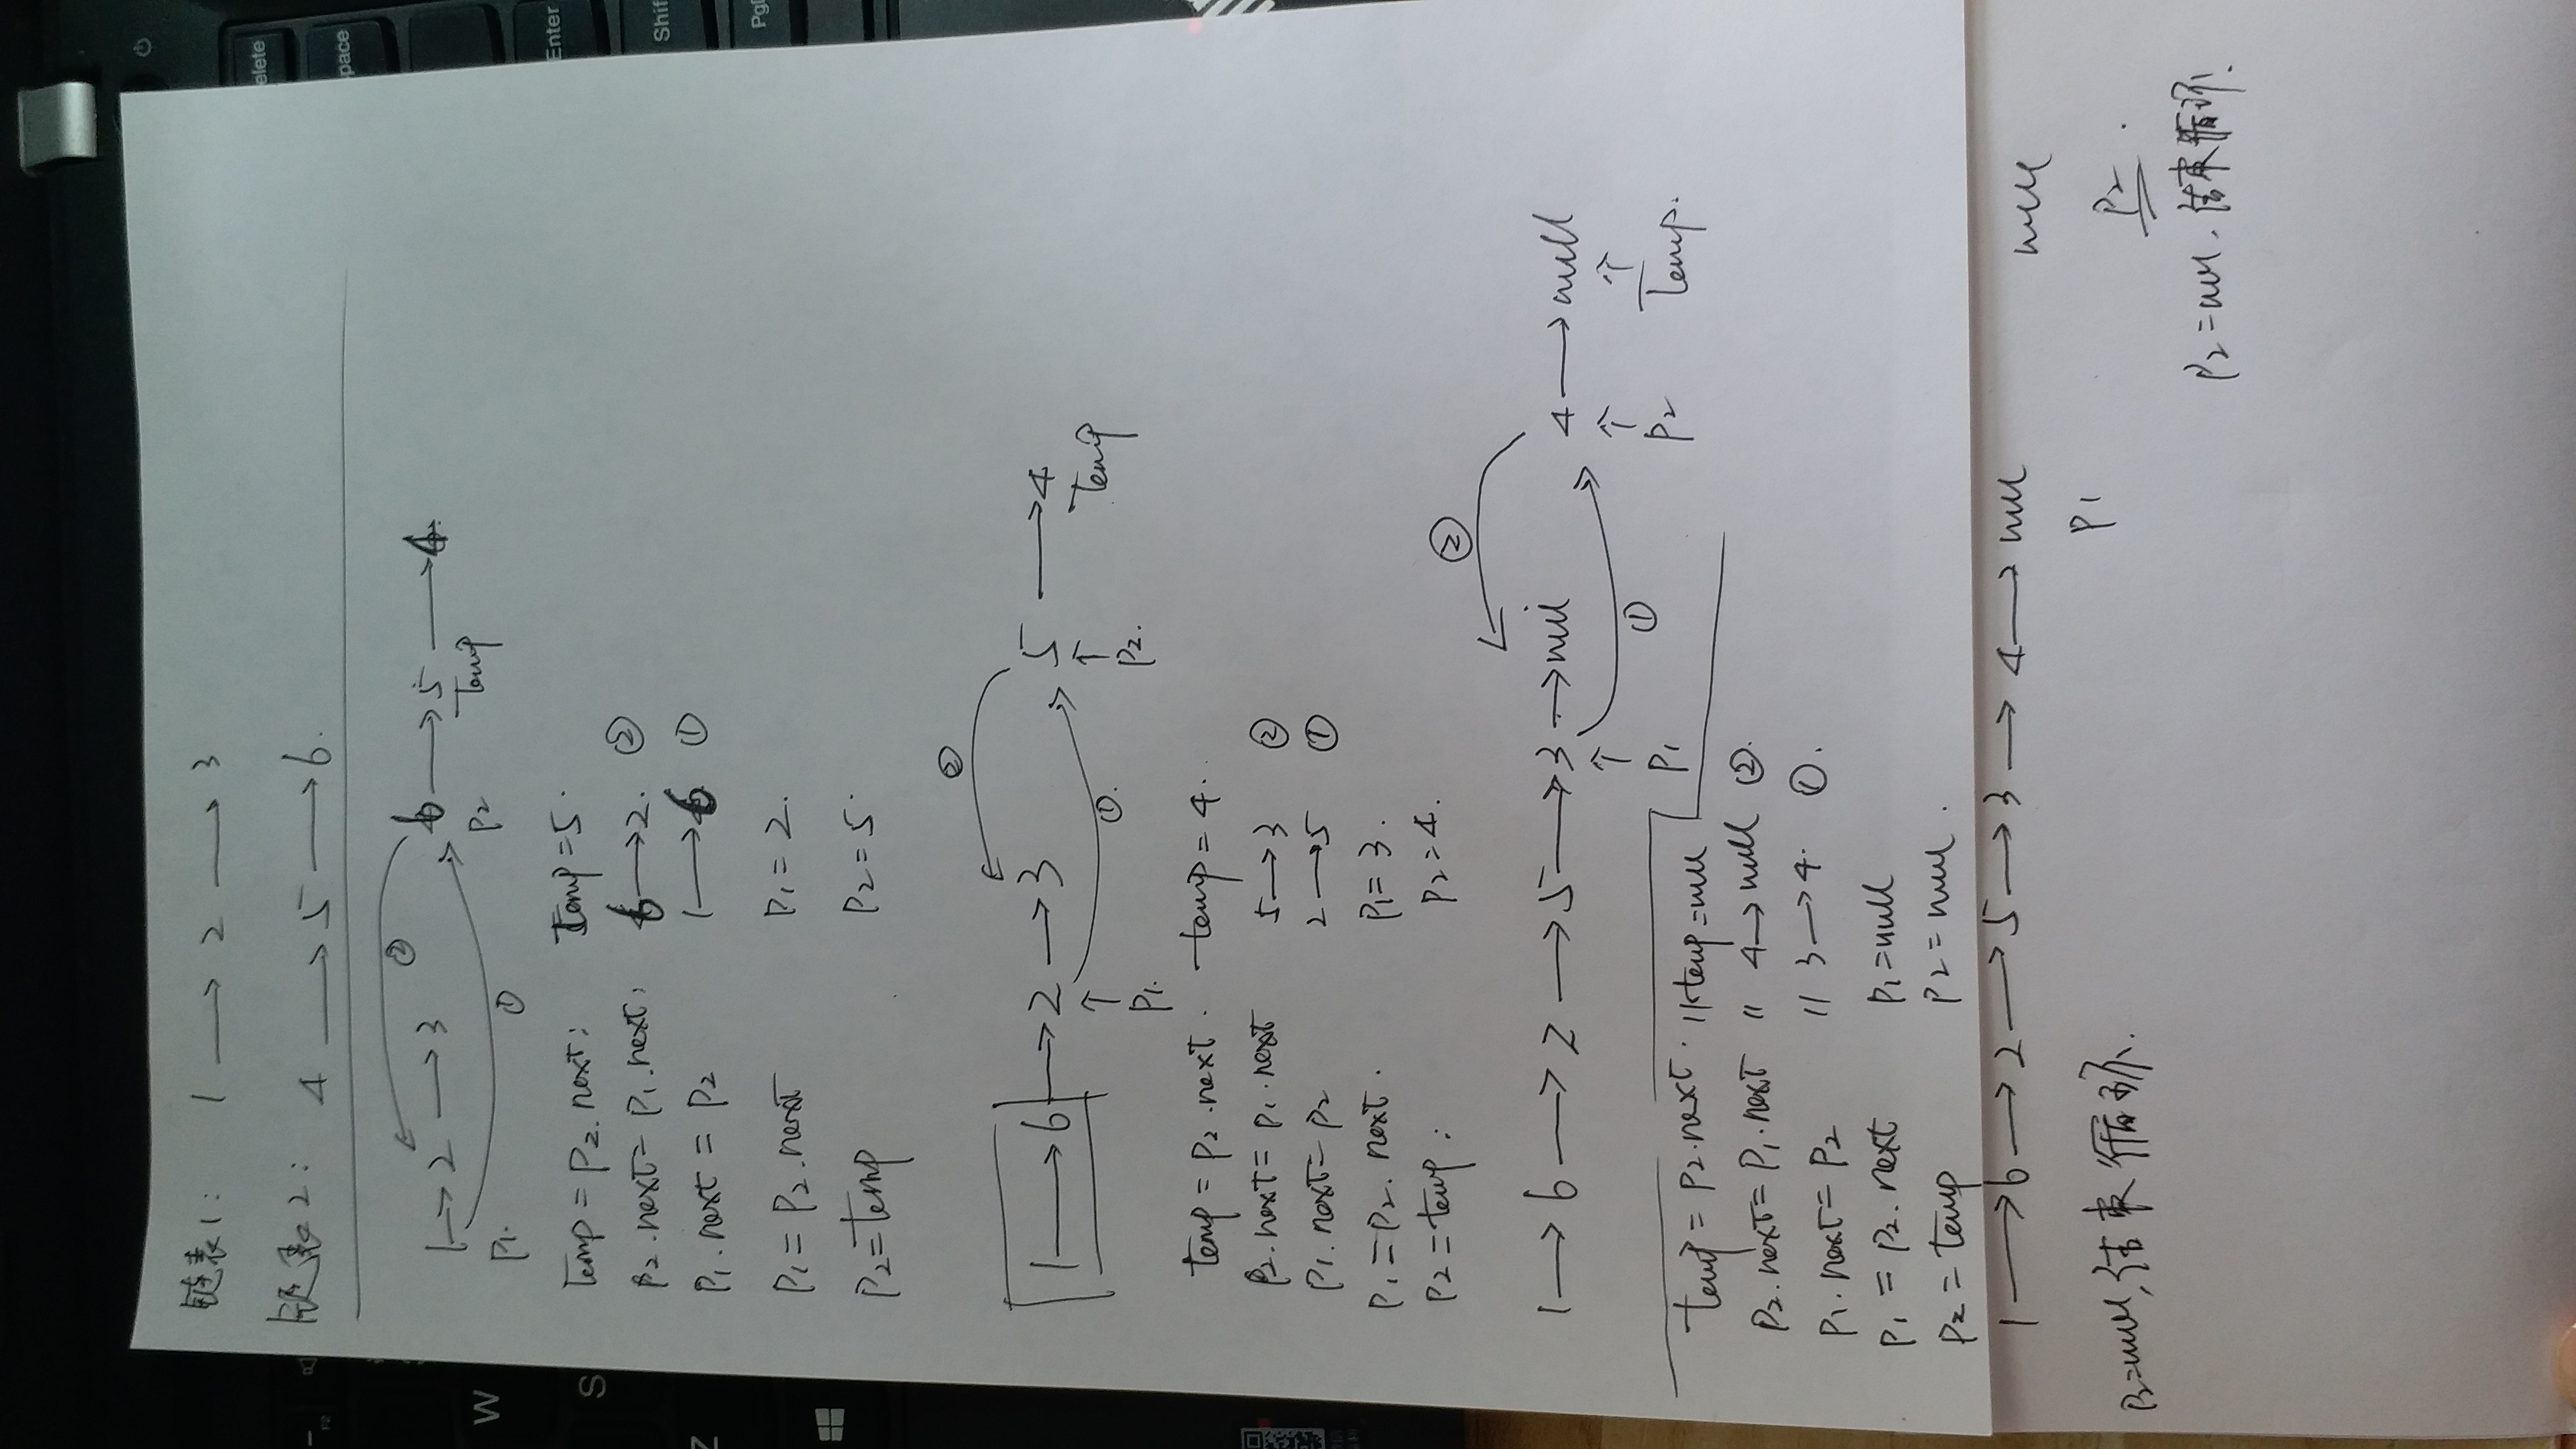 链表1: 1 → 2 → 3
链表2: 4 → 5 → 6.
②
1 → 2 → 3 6 → 5 → 4
p1. ① p2 Temp
temp = p2.next; temp = 5.
p2.next = p1.next; 6 → 2. ②
p1.next = p2 1 → 6 ①
p1 = p2.next p1 = 2.
p2 = temp p2 = 5.
②
1 → 6 → 2 → 3 5 → 4
↑ ①. ↑ Temp
p1. p2.
temp = p2.next. temp = 4.
p2.next = p1.next 5 → 3 ②
p1.next = p2 2 → 5 ①
p1 = p2.next. p1 = 3.
p2 = temp; p2 = 4.
②
1 → 6 → 2 → 5 → 3 → null 4 → null
↑ ① ↑ ↑
p1 p2 Temp.
temp = p2.next. // temp = null
p2.next = p1.next // 4 → null ②.
p1.next = p2 // 3 → 4. ①.
p1 = p2.next p1 = null
p2 = temp p2 = null.
1 → 6 → 2 → 5 → 3 → 4 → null null
p1 p2.
p2=null,结束循环.
p2=null,结束循环.
elete
pace
Enter
Shif
Pg
W
S
Z